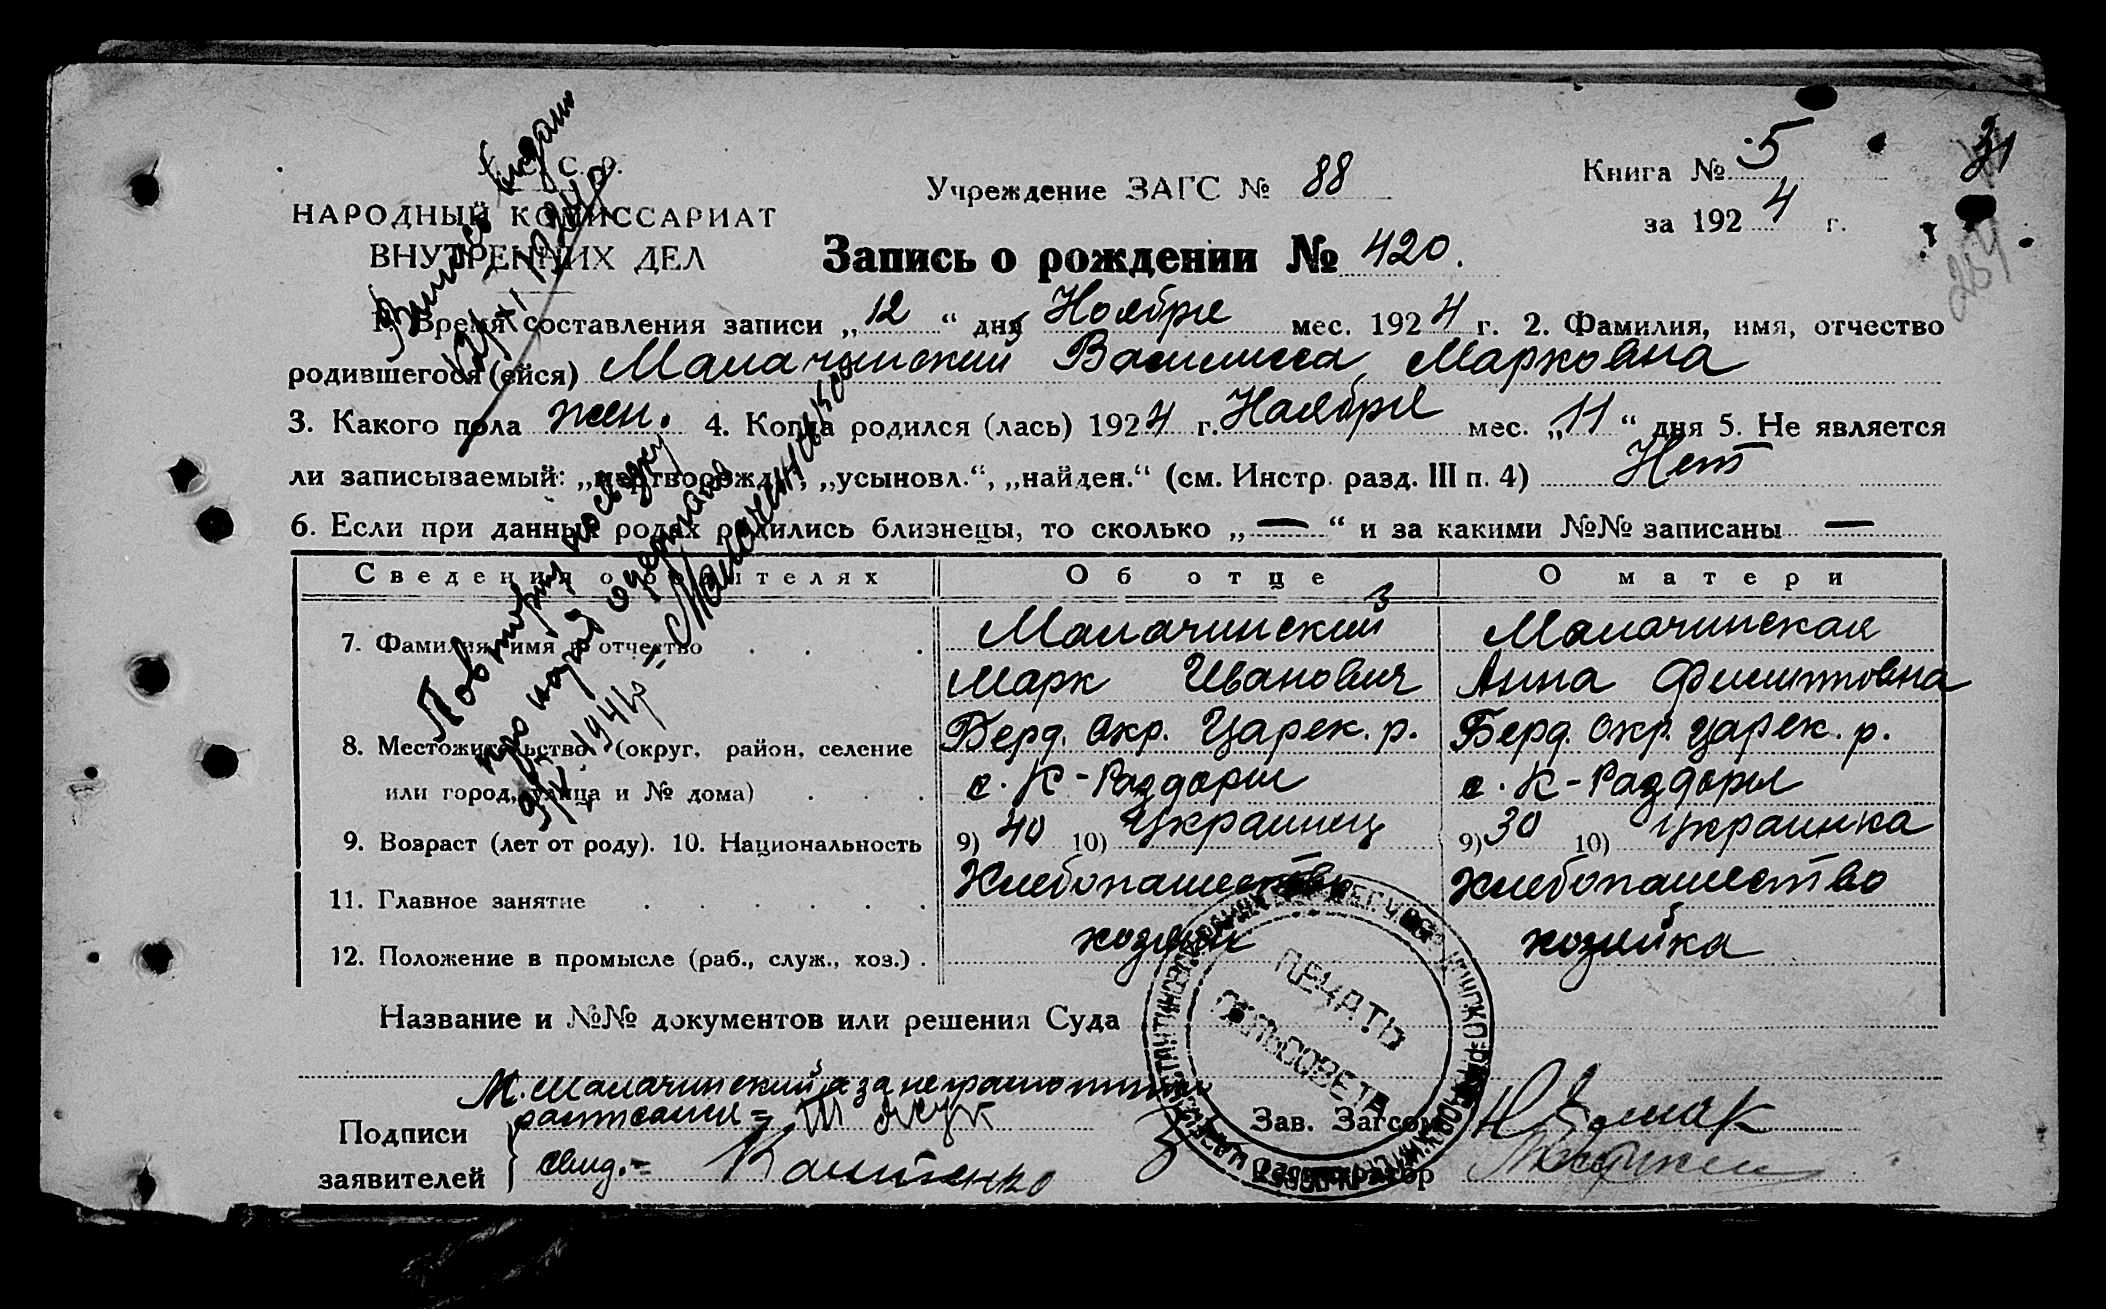 У. С. С. Р.
НАРОДНЫЙ КОМИССАРИАТ
ВНУТРЕННИХ ДЕЛ
Учреждение ЗАГС № 88
Книга № 5
за 1924 г.
31
Запись о рождении № 420.
1. Время составления записи „12“ дня Ноября мес. 1924 г. 2. Фамилия, имя, отчество
родившегося (ейся) Малачинский Василиса Марковна
3. Какого пола жен. 4. Когда родился (лась) 1924 г. Ноября мес. „11“ дня 5. Не является
ли записываемый: „мертворожд.“, „усыновл.“, „найден.“ (см. Инстр. разд. III п. 4) Нет
6. Если при данных родах родились близнецы, то сколько „—“ и за какими №№ записаны —
Сведения о родителях Об отце О матери
7. Фамилия, имя и отчество Малачинский Малачинская
Марк Иванович Анна Филипповна
8. Местожительство (округ, район, селение Берд. Окр. Царек. р. Берд. Окр. Царек. р.
или город, улица и № дома) с. К-Раздоры с. К-Раздоры
9. Возраст (лет от роду). 10. Национальность 9) 40 10) Украинец 9) 30 10) Украинка
11. Главное занятие Хлебопашество Хлебопашество
12. Положение в промысле (раб., служ., хоз.) хозяин хозяйка
Название и №№ документов или решения Суда
М. Малачинский а за неграмотн
Подписи
заявителей
свид.-
Зав. Загсом
ПЕЧАТЬ
СЕЛЬСОВЕТА
Повторну посвідку
про народ. одержано
Малачинська